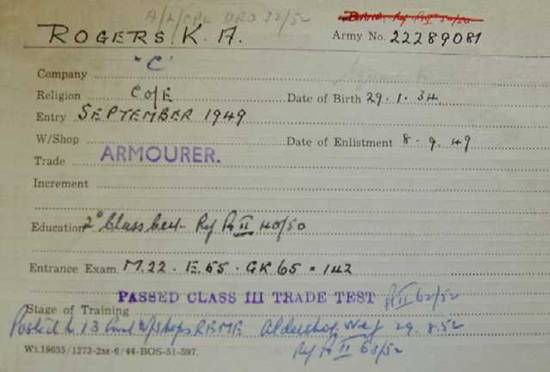 A/L/CPL DRO 32/52
ROGERS K. A.
Army No. 22289081
"C"
Company
Religion C of E Date of Birth 29.1.34
Entry SEPTEMBER 1949
W/Shop Date of Enlistment 8.9.49
Trade ARMOURER.
Increment
Education 2° Class Cert- Ref Pt II 40/50
Entrance Exam. M.22. E.55. GK 65 = 142
PASSED CLASS III TRADE TEST Pt II 62/52
Stage of Training
Posted to 13 W/shops REME Aldershot Wef 29.8.52
Ref Pt II 65/52
Wt.19655/1273-2M-6/44-BOS-51-597.